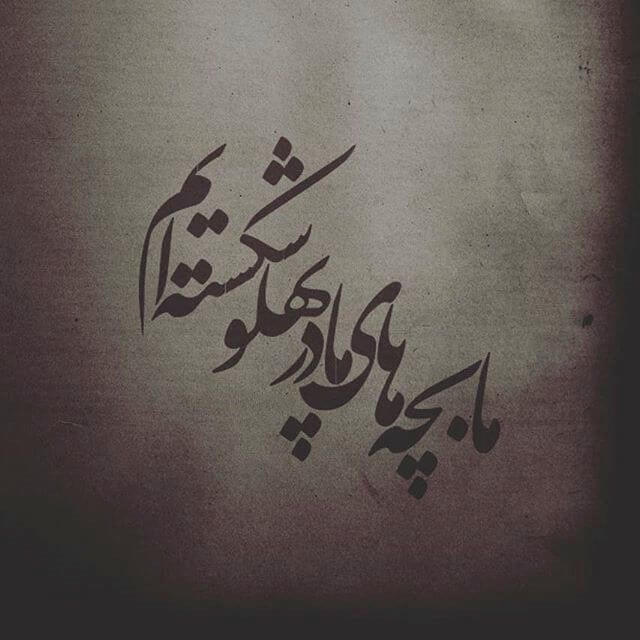 ما بچه های مادر پهلو شکسته ایم